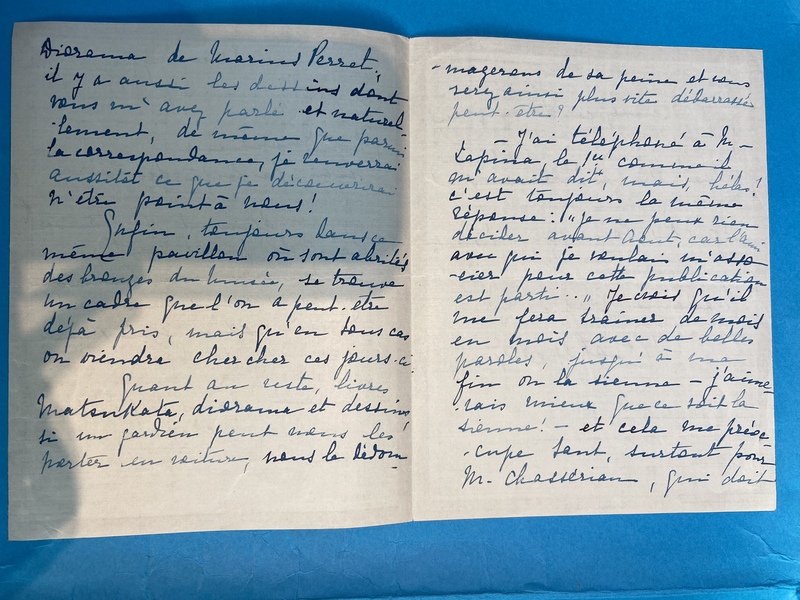 Diorama de Marius Perret,
il y a aussi les dessins dont
vous m'avez parlé et naturel
-lement, de même que parmi
la correspondance, je renverrai
aussitôt ce que je découvrirai
n'être point à nous!
Enfin, toujours dans ce
même pavillon où sont abrités
des bronzes du musée, se trouve
un cadre que l'on a peut-être
déjà pris, mais qu'en tous cas
on viendra chercher ces jours-ci.
Quant au reste, livres
Matsukata, diorama et dessins,
si un gardien peut nous les
porter en voiture, nous le dédom
-magerons de sa peine et vous
serez ainsi plus vite débarrassé
peut-être?
- J'ai téléphoné à M-
Lapina, le 1er comme il
m'avait dit, mais, hélas!
c'est toujours la même
réponse: "Je ne peux rien
décider avant Août, car l'ami
avec qui je voulais m'asso
-cier pour cette publication
est parti..." Je crois qu'il
me fera traîner de mois
en mois avec de belles
paroles, jusqu'à ma
fin ou la sienne - j'aime
-rais mieux que ce soit la
sienne! - et cela me préoc
-cupe tant, surtout pour
M- Chassériau, qui doit